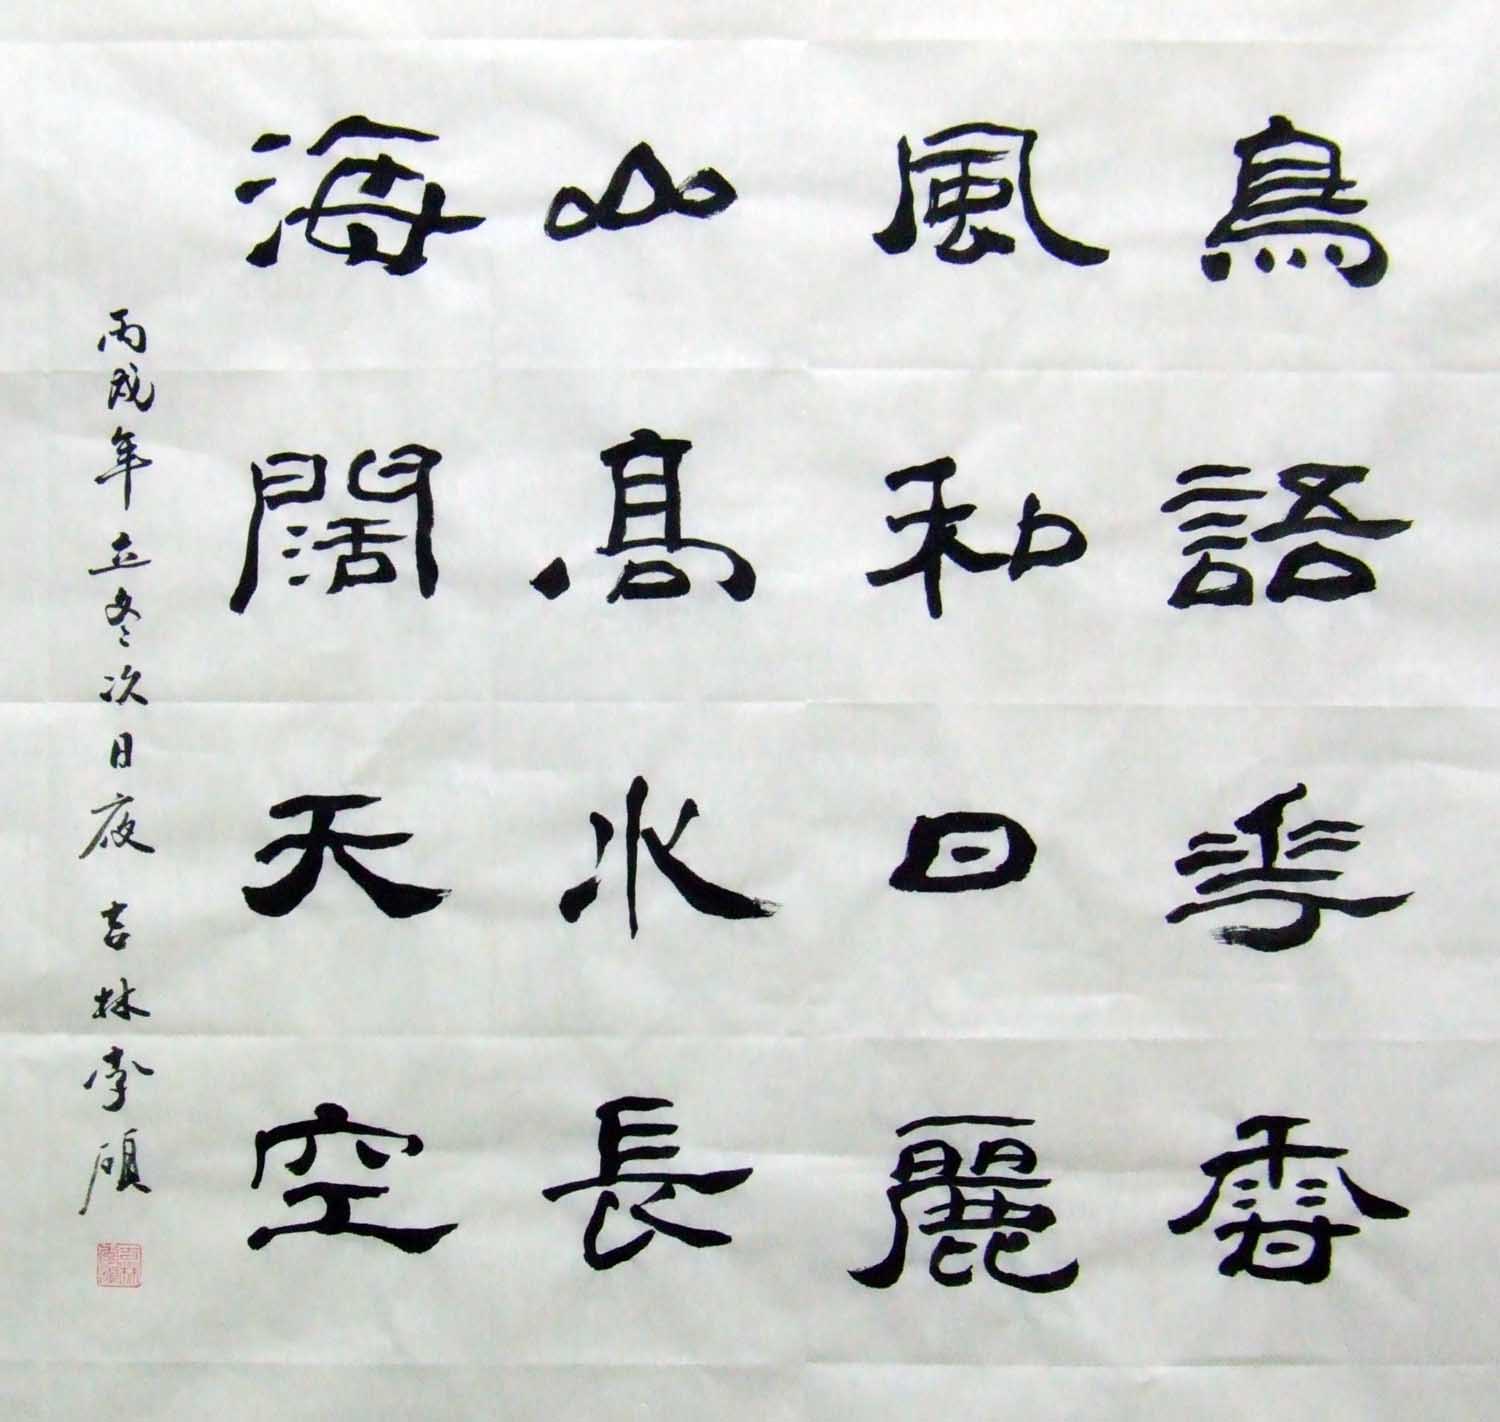 鳥語花香
風和日麗
山高水長
海闊天空
丙戌年立冬次日夜吉林李碩